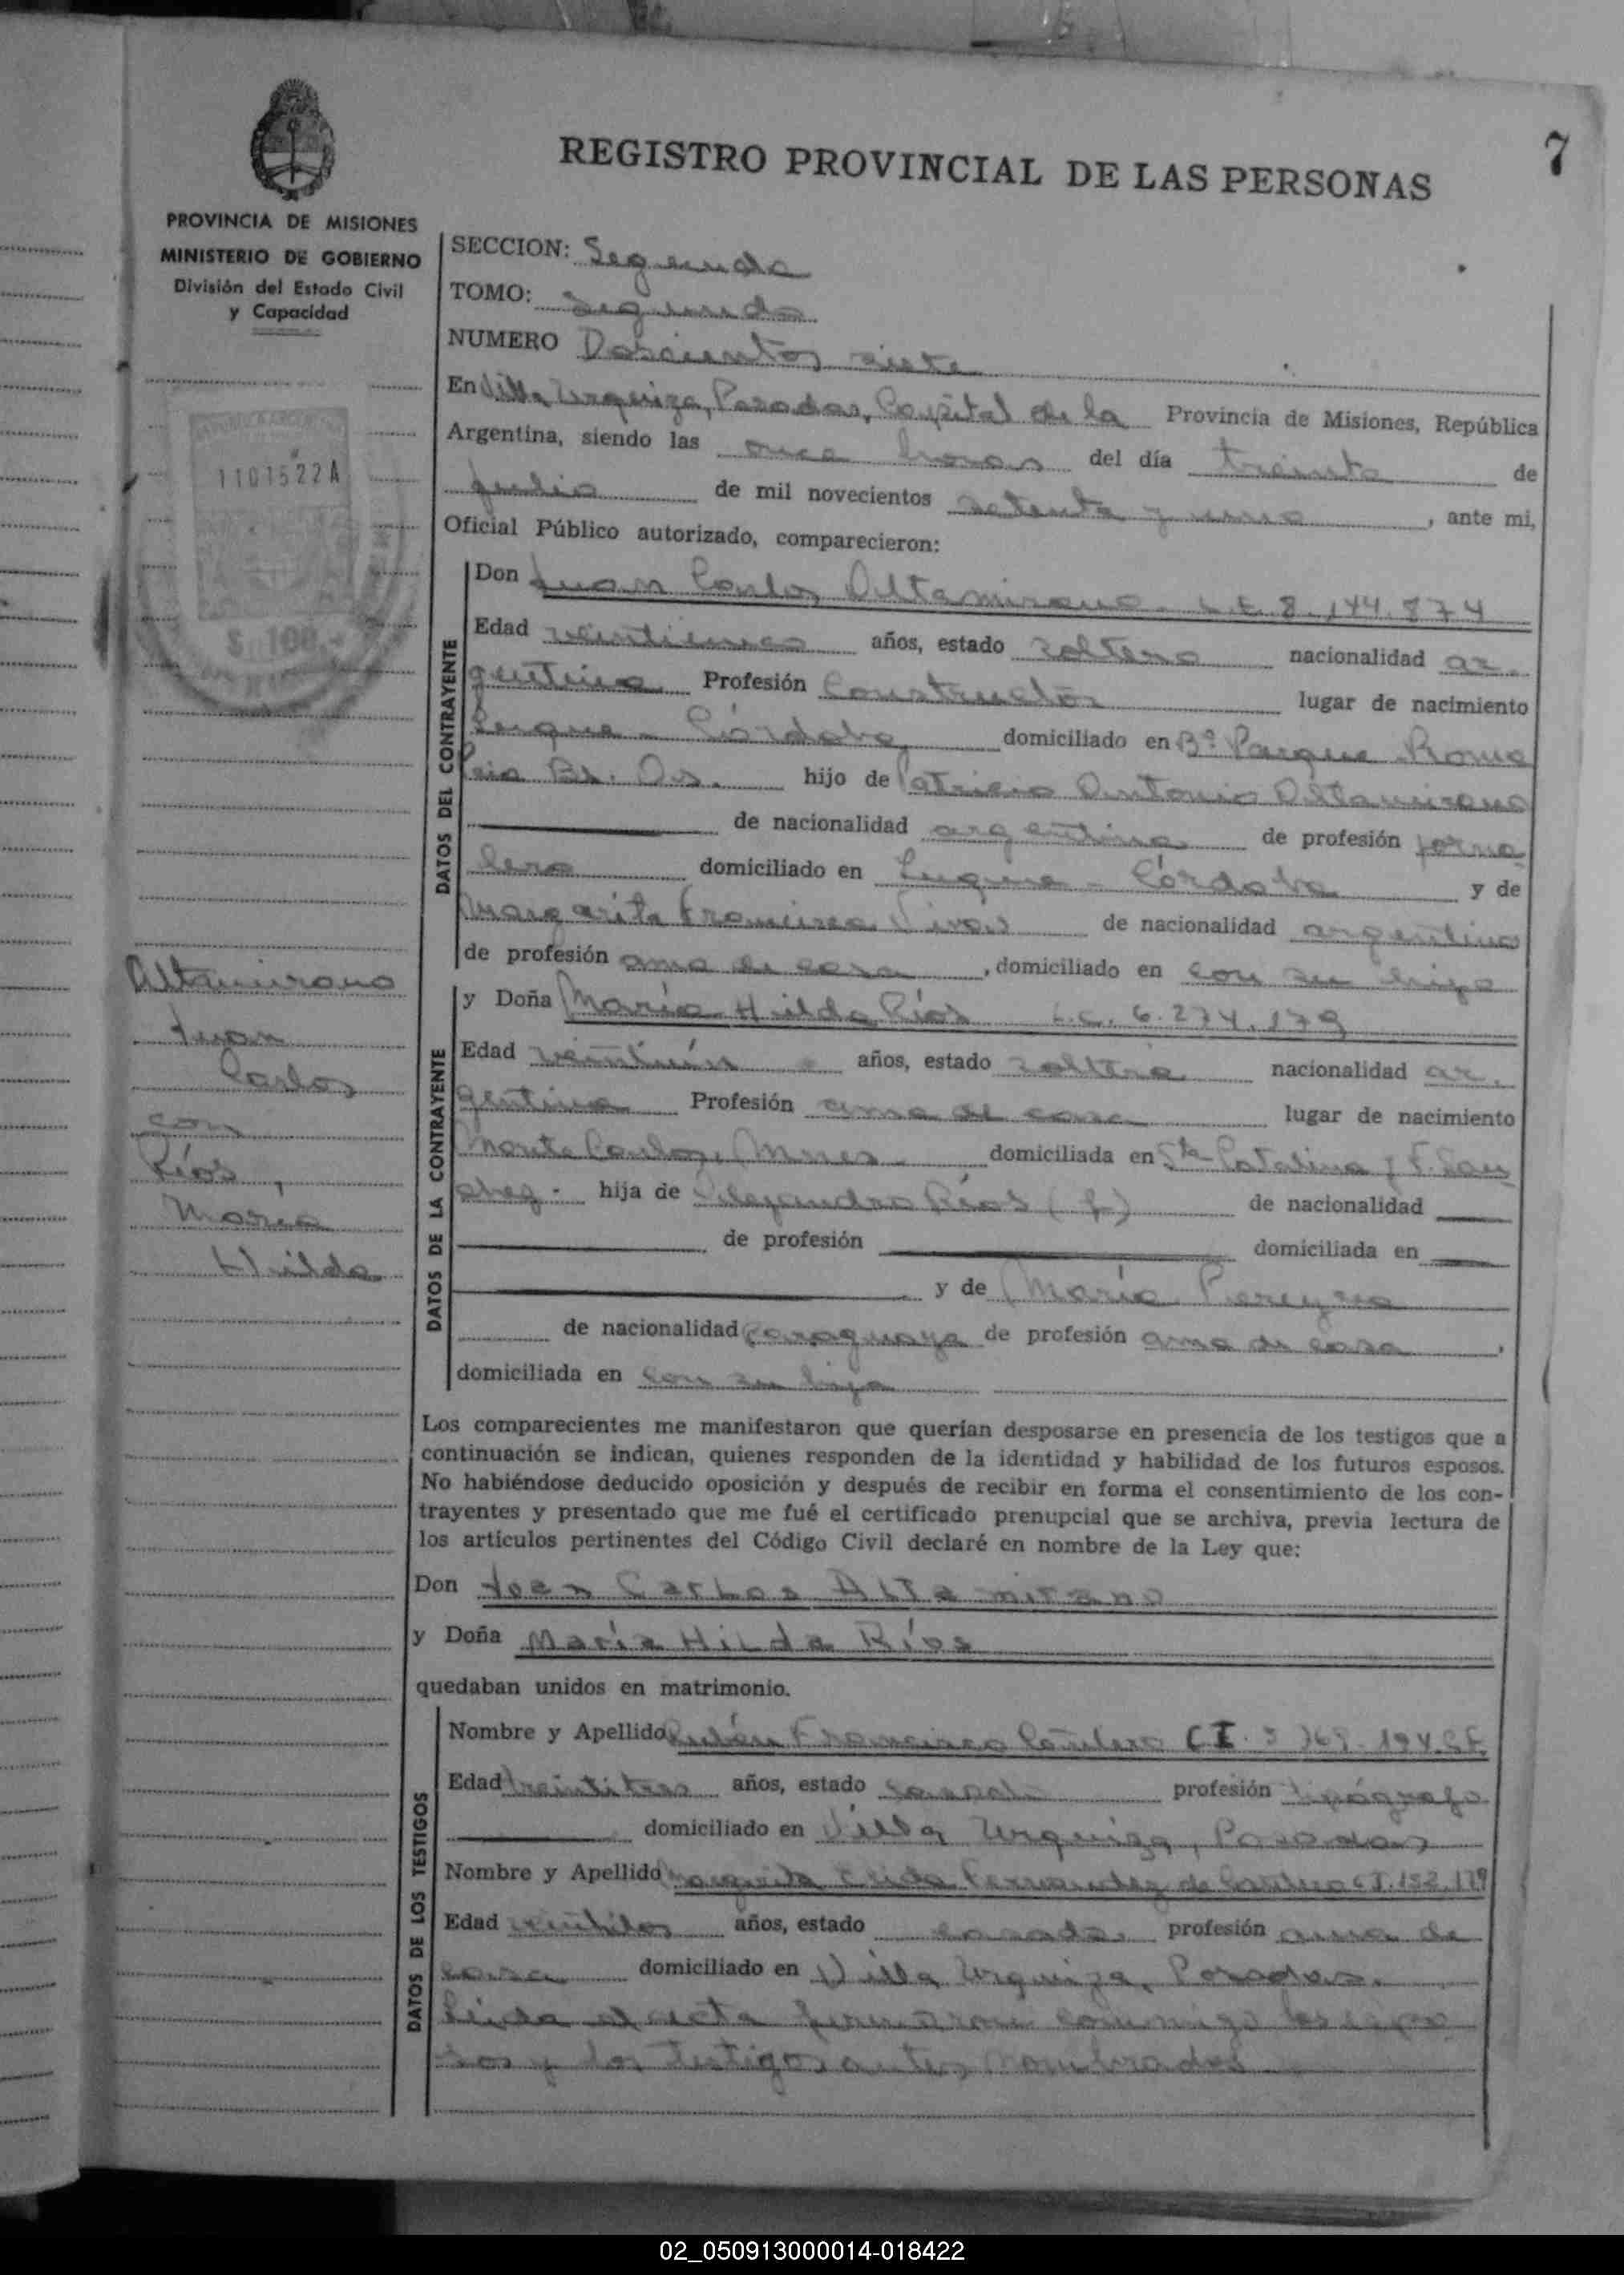 REGISTRO PROVINCIAL DE LAS PERSONAS
7
PROVINCIA DE MISIONES
MINISTERIO DE GOBIERNO
División del Estado Civil
y Capacidad
1101522A
$ 100.-
SECCION: Segunda
TOMO: Segundo
NUMERO Doscientos siete
En Villa Urquiza, Posadas, Capital de la Provincia de Misiones, República
Argentina, siendo las once horas del día treinta de
julio de mil novecientos setenta y uno, ante mi,
Oficial Público autorizado, comparecieron:
DATOS DEL CONTRAYENTE
Don Juan Carlos Altamirano. L.E. 8.144.874
Edad años, estado soltero nacionalidad ar-
gentina Profesión Constructor lugar de nacimiento
Luque - Córdoba, domiciliado en Bº Parque
Bs. As. hijo de Patricio Antonio Altamirano
de nacionalidad argentina de profesión jorna-
lero domiciliado en Luque - Córdoba y de
Margarita Francisca Vivas de nacionalidad argentina
de profesión ama de casa, domiciliado en con su hijo
DATOS DE LA CONTRAYENTE
y Doña María Hilda Ríos L.C. 6.274.179
Edad veintiún años, estado soltera nacionalidad ar-
gentina Profesión ama de casa lugar de nacimiento
Monte Carlos, Mnes. domiciliada en Sta Catalina y F. San
chez. hija de Alejandro Ríos (f) de nacionalidad
de profesión domiciliada en
y de María Pereyra
de nacionalidad paraguaya de profesión ama de casa,
domiciliada en con su hija
Altamirano
Juan
Carlos
con
Ríos,
María
Hilda
Los comparecientes me manifestaron que querían desposarse en presencia de los testigos que a
continuación se indican, quienes responden de la identidad y habilidad de los futuros esposos.
No habiéndose deducido oposición y después de recibir en forma el consentimiento de los con-
trayentes y presentado que me fué el certificado prenupcial que se archiva, previa lectura de
los artículos pertinentes del Código Civil declaré en nombre de la Ley que:
Don Juan Carlos Altamirano
y Doña María Hilda Ríos
quedaban unidos en matrimonio.
DATOS DE LOS TESTIGOS
Nombre y Apellido Rubén Francisco C.I.
Edad treintitres años, estado casado profesión tipógrafo
domiciliado en Villa Urquiza, Posadas
Nombre y Apellido Margarita Fernandez de C.I. 152.179
Edad veintidos años, estado casada, profesión ama de
casa domiciliado en Villa Urquiza, Posadas.
Leida el acta firmaron conmigo los espo
sos y los testigos antes nombrados
02_050913000014-018422